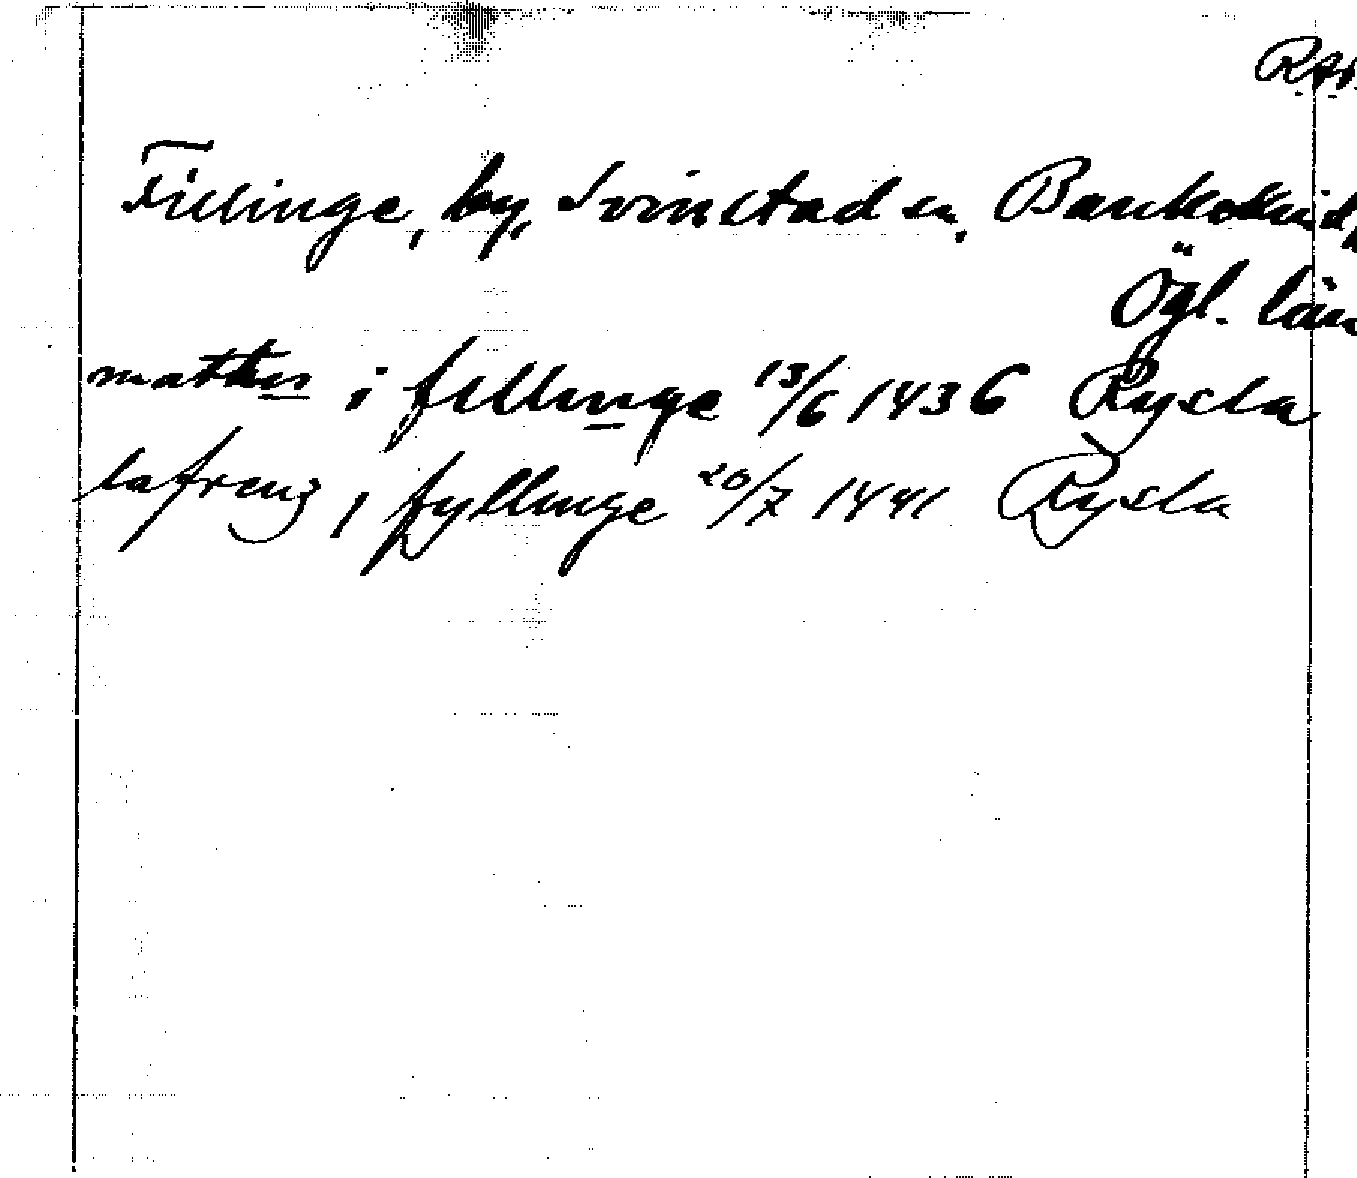 Fillinge, by, Svinstad sn, Bankekind,
Ögl. län
mattes i fillinge 13/6 1436 Rysla
lafrenz i fyllinge 20/7 1441 Rysla